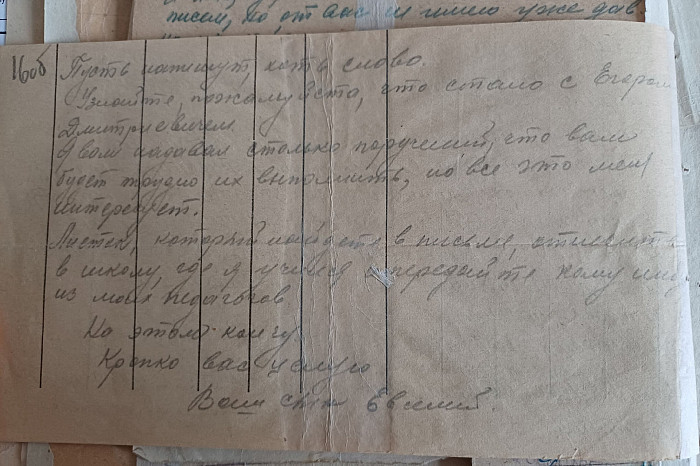 писем, но от вас не имею уже дав
16об
Пусть напишут, хоть слово.
Узнайте, пожалуйста, что стало с Егором
Дмитриевичем.
Я вам надавал столько поручений, что вам
будет трудно их выполнить, но все это меня
интересует.
Листек, который найдете в письме, отнесите
в школу, где я учился и передайте кому ниб.
из моих педагогов
На этом кончу
Крепко вас целую
Ваш сын Евгений.